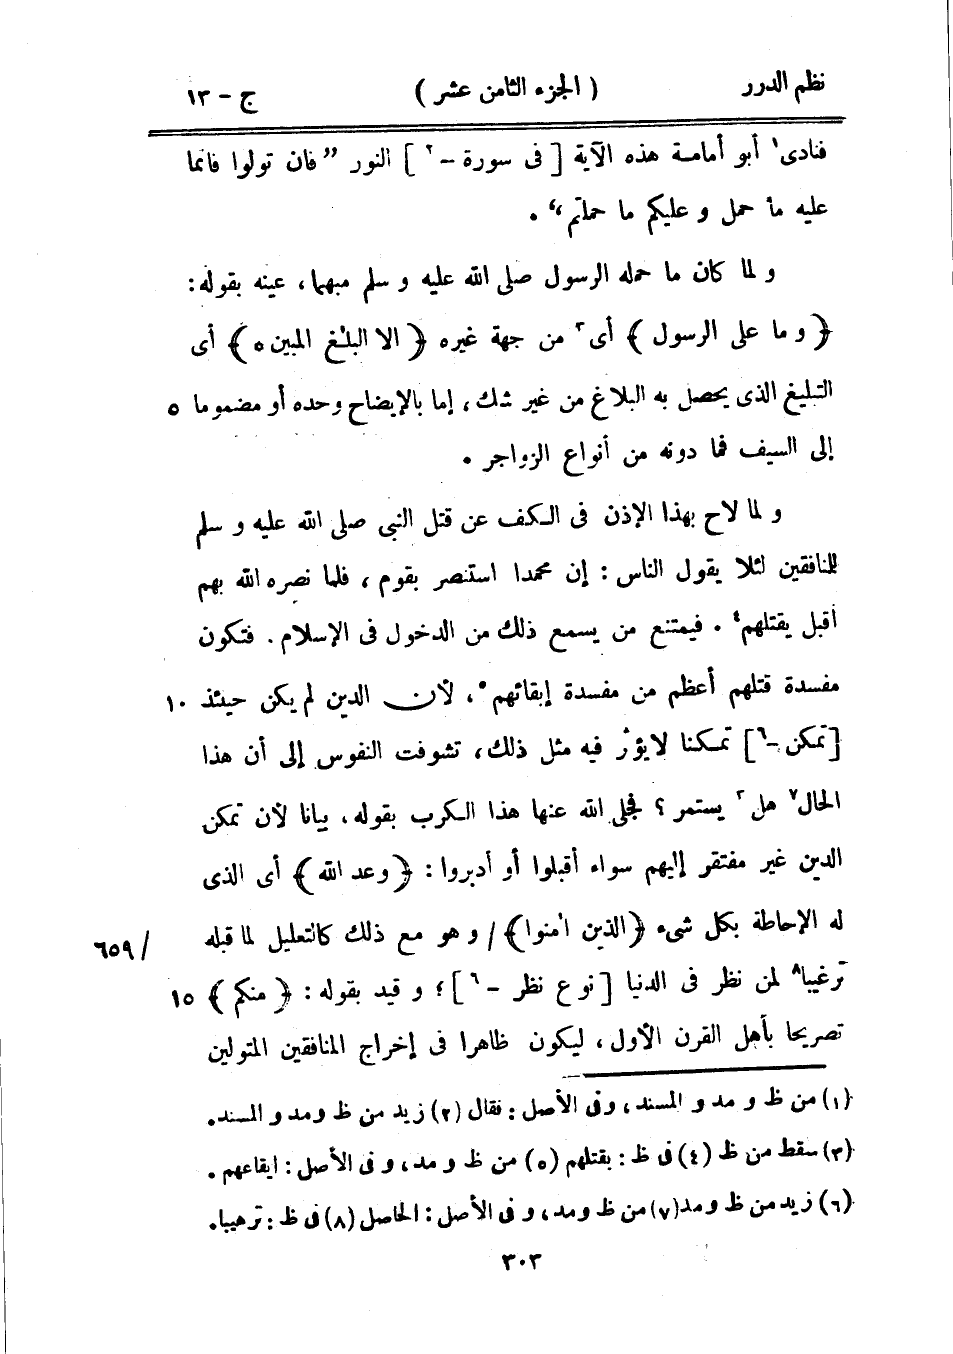 نظم الدرر ( الجزء الثامن عشر ) ج - ١٣
فنادى١ أبو أمامة هذه الآية [ فى سورة - ٢ ] النور ” فان تولوا فانما
عليه ما حمل و عليكم ما حملتم “ .
و لما كان ما حمله الرسول صلى الله عليه و سلم مبهما، عينه بقوله:
﴿ و ما على الرسول ﴾ أى٣ من جهة غيره ﴿ الا البلٰغ المبين ٥ ﴾ أى
التبليغ الذى يحصل به البلاغ من غير شك، إما بالإيضاح وحده أو مضموما ٥
إلى السيف فما دونه من أنواع الزواجر .
و لما لاح بهذا الإذن فى الكف عن قتل النبى صلى الله عليه و سلم
للنافقين لئلا يقول الناس : إن محمدا استنصر بقوم ، فلما نصره الله بهم
أقبل يقتلهم٤ . فيمتنع من يسمع ذلك من الدخول فى الإسلام . فتكون
مفسدة قتلهم أعظم من مفسدة إبقائهم٥ ، لأن الدين لم يكن حينئذ ١٠
[ تمكن - ٦ ] تمكنا لا يؤثر فيه مثل ذلك، تشوفت النفوس إلى أن هذا
الحال٧ هل٣ يستمر ؟ فجلى الله عنها هذا الكرب بقوله، بيانا لأن تمكن
الدين غير مفتقر إليهم سواء أقبلوا أو أدبروا : ﴿ وعد الله ﴾ أى الذى
له الإحاطة بكل شىء ﴿ الذين اٰمنوا ﴾ / و هو مع ذلك كالتعليل لما قبله /٦٥٩
ترغيبا٨ لمن نظر فى الدنيا [ نوع نظر - ٦ ] ؛ و قيد بقوله : ﴿ منكم ﴾ ١٥
تصريحا بأهل القرن الأول ، ليكون ظاهرا فى إخراج المنافقين المتولين
(١) من ظ و مد و المسند، وفى الأصل : فقال (٢) زيد من ظ ومد و المسند.
(٣) سقط من ظ (٤) فى ظ : بقتلهم (٥) من ظ و مد، و فى الأصل : ايقاعهم .
(٦) زيد من ظ و مد (٧) من ظ ومد، و فى الأصل : الحاصل (٨) فى ظ : ترهيبا.
٣٠٣